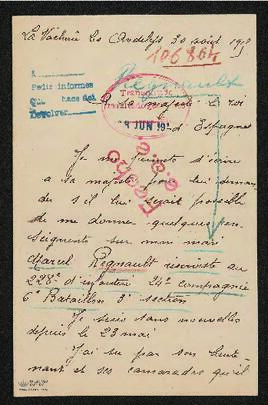 La Vacherie les Andelys 30 août 1918
106864
A
Pedir informes
Que hace del
Devolver
Regnault
Transmis le
8 JUN 191
Majesté Le roi
d'Espagne
Je me permets d'écrire
à sa majesté pour lui deman
der s'il lui serait possible
de me donner quelques ren
seignements sur mon mari
Marcel Regnault inscrit au
228e d'infanterie 24e compagnie
6e Bataillon 3e section
Je suis sans nouvelles
depuis le 23 mai
J'ai su par son lieute
nant et ses camarades qu'il